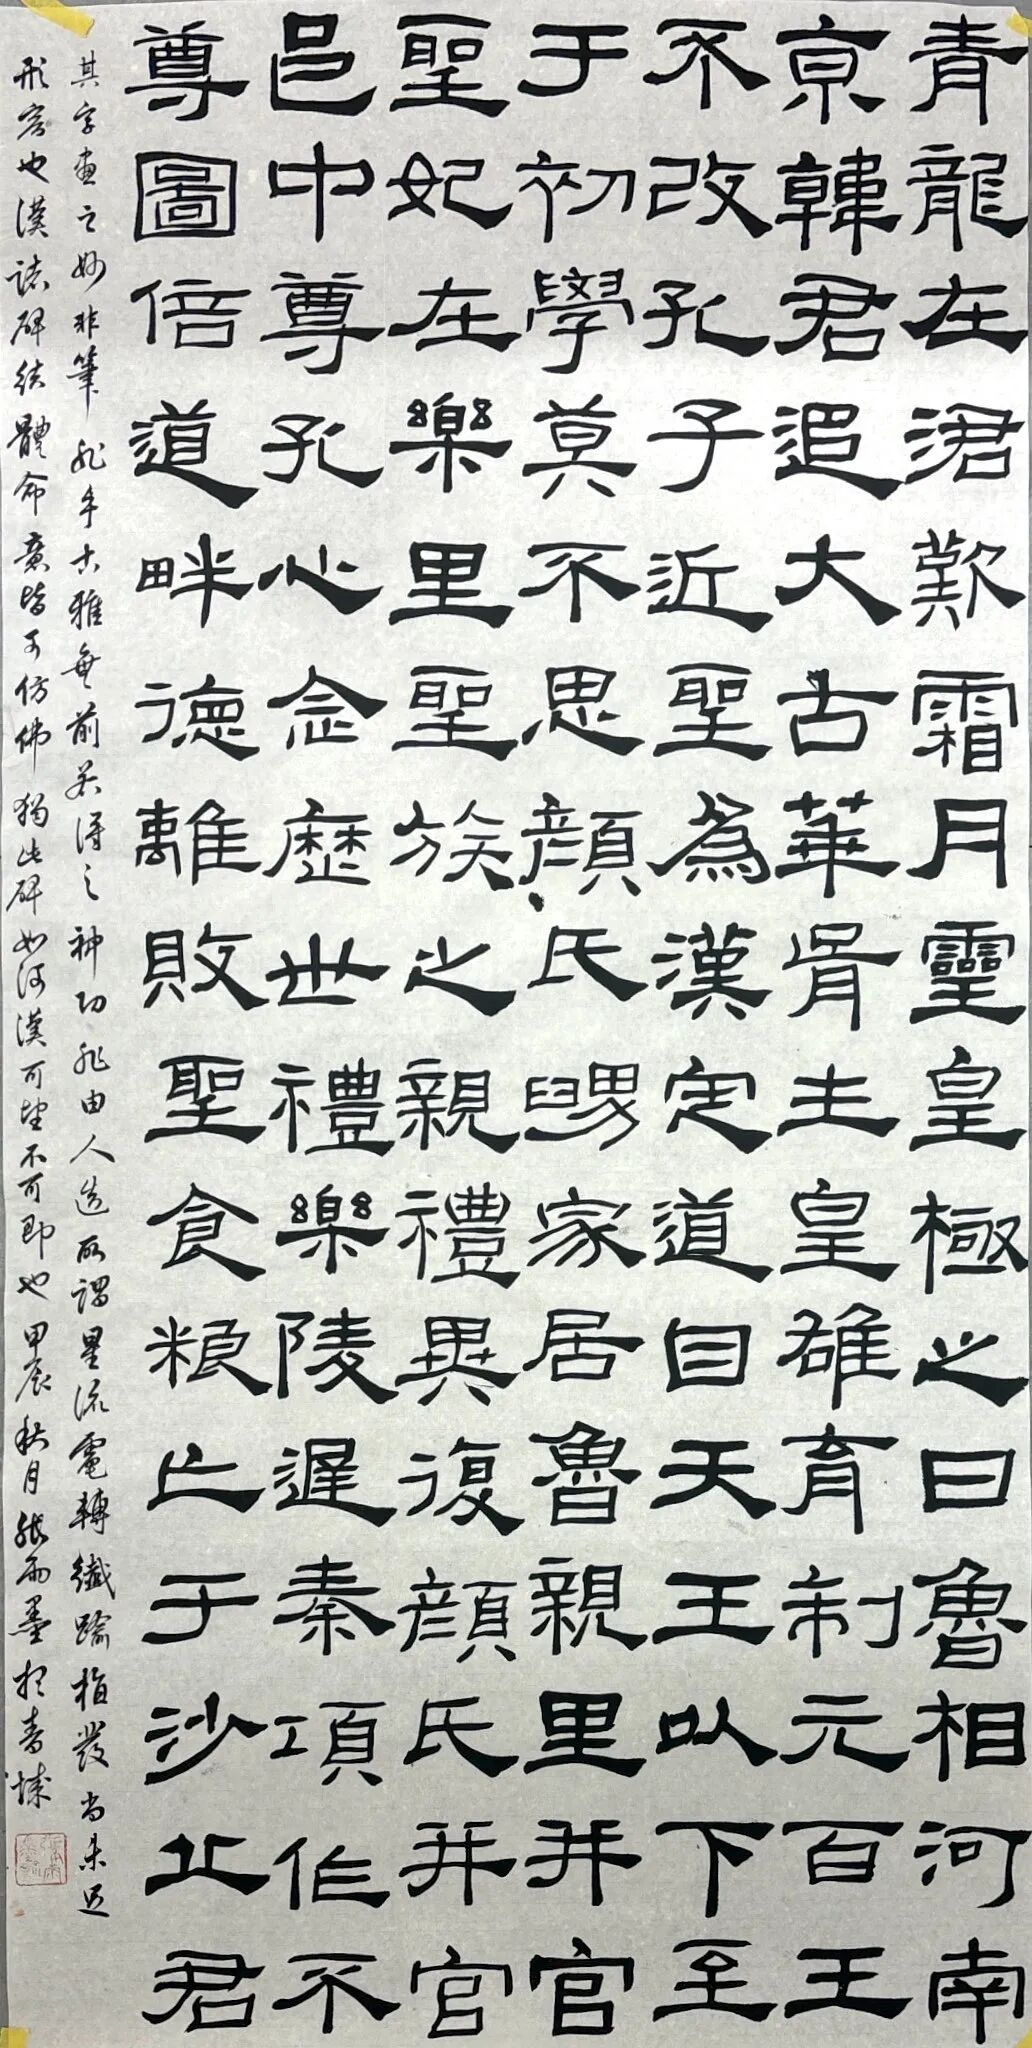 青龍在涒歎霜月靈皇極之日魯相河南
京韓君追大古華胥生皇雄育制元百王
不改孔子近聖為漢定道自天王以下至
于初學莫不思顏氏䎡家居魯親里并官
聖妃在樂里聖族之親禮異復顏氏并官
邑中尊孔心念歷世禮樂陵遲秦項作不
尊圖倍道畔德離敗聖食糧亡于沙丘君
其字畫之妙非筆非手古雅無前若得之神功非由人造所謂星流電轉纖踰植髮尚未足
形容也漢諸碑結體命意皆可仿佛獨此碑如河漢可望不可即也甲辰秋月張雨墨於青城